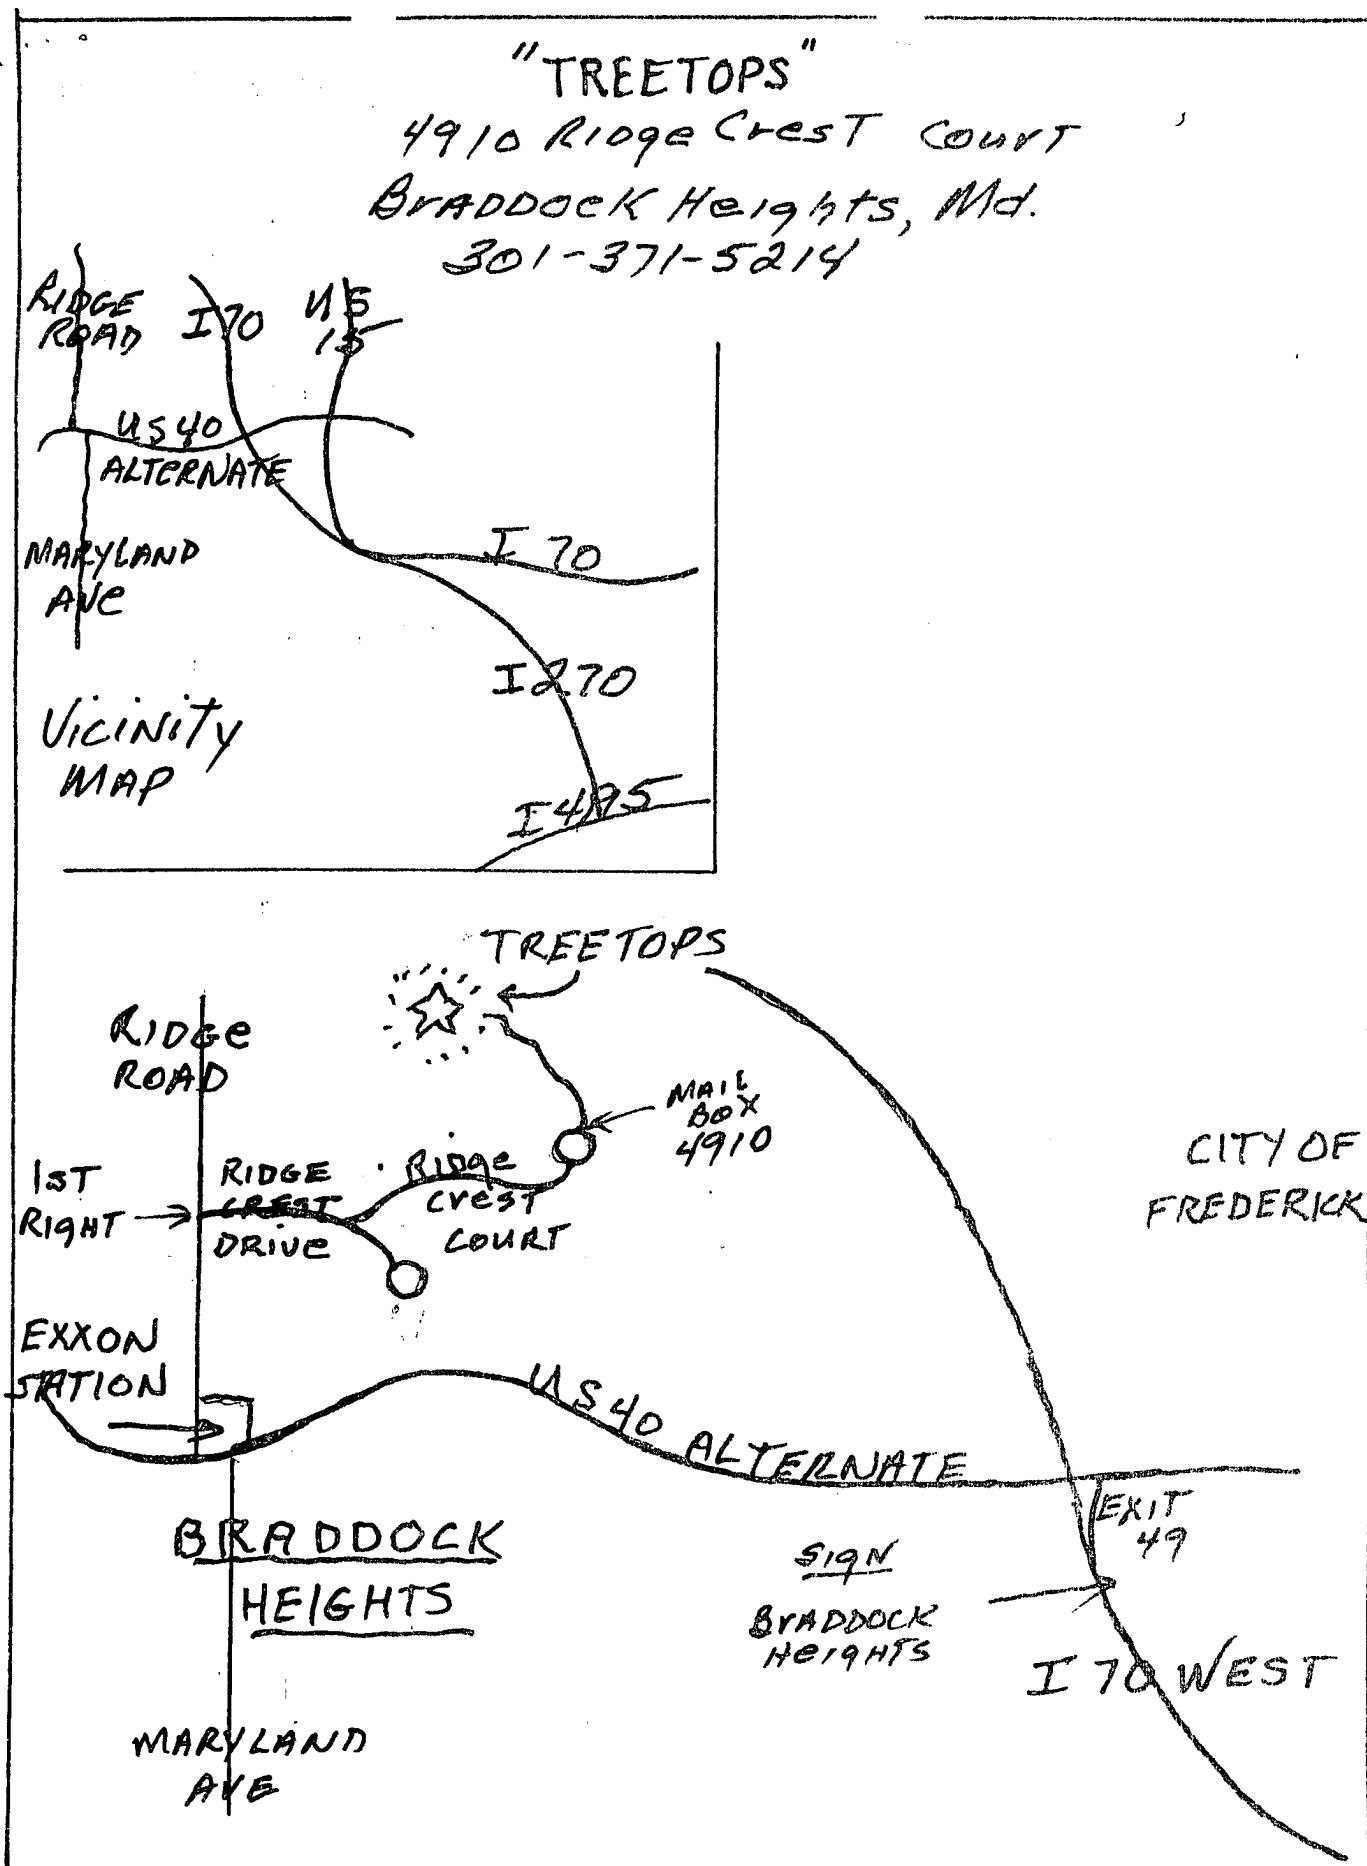 "TREETOPS"
4910 RIDge CresT CourT
BrADDOcK Heights, Md.
301-371-5214
RIDGE
ROAD
I 70
US
15
US 40
ALTeRNATE
MARYLAND
AVe
I 70
I 270
ViciNiTy
MAP
I 495
TREETOPS
RIDGe
ROAD
MAIL
BOX
4910
CITY OF
FREDERICK
1ST
RIgHT
RIDGE
CREST
DRIVe
RIDge
CresT
COURT
EXXON
STATION
US 40 ALTERNATE
EXIT
49
BRADDOCK
HEIGHTS
SIgN
BrADDOCK
HeIgHTS
I 70 WEST
MARYLAND
AVE